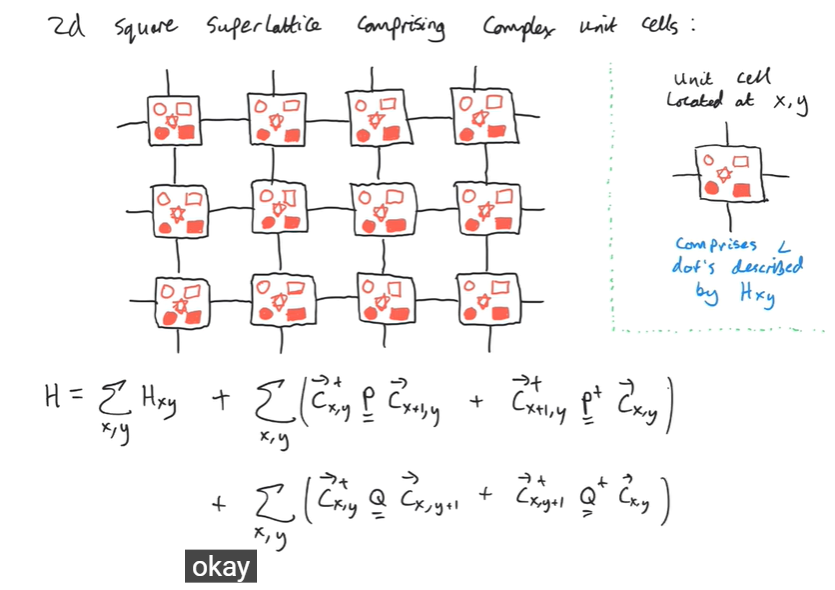 2d Square Superlattice Comprising Complex unit cells:
Unit cell
Located at x,y
Comprises L
dot's described
by Hxy
H = ∑_{x,y} H_{xy} + ∑_{x,y} ( \vec{C}^{+}_{x,y} \underline{\underline{P}} \vec{C}_{x+1,y} + \vec{C}^{+}_{x+1,y} \underline{\underline{P}}^{+} \vec{C}_{x,y} )
+ ∑_{x,y} ( \vec{C}^{+}_{x,y} \underline{\underline{Q}} \vec{C}_{x,y+1} + \vec{C}^{+}_{x,y+1} \underline{\underline{Q}}^{+} \vec{C}_{x,y} )
okay